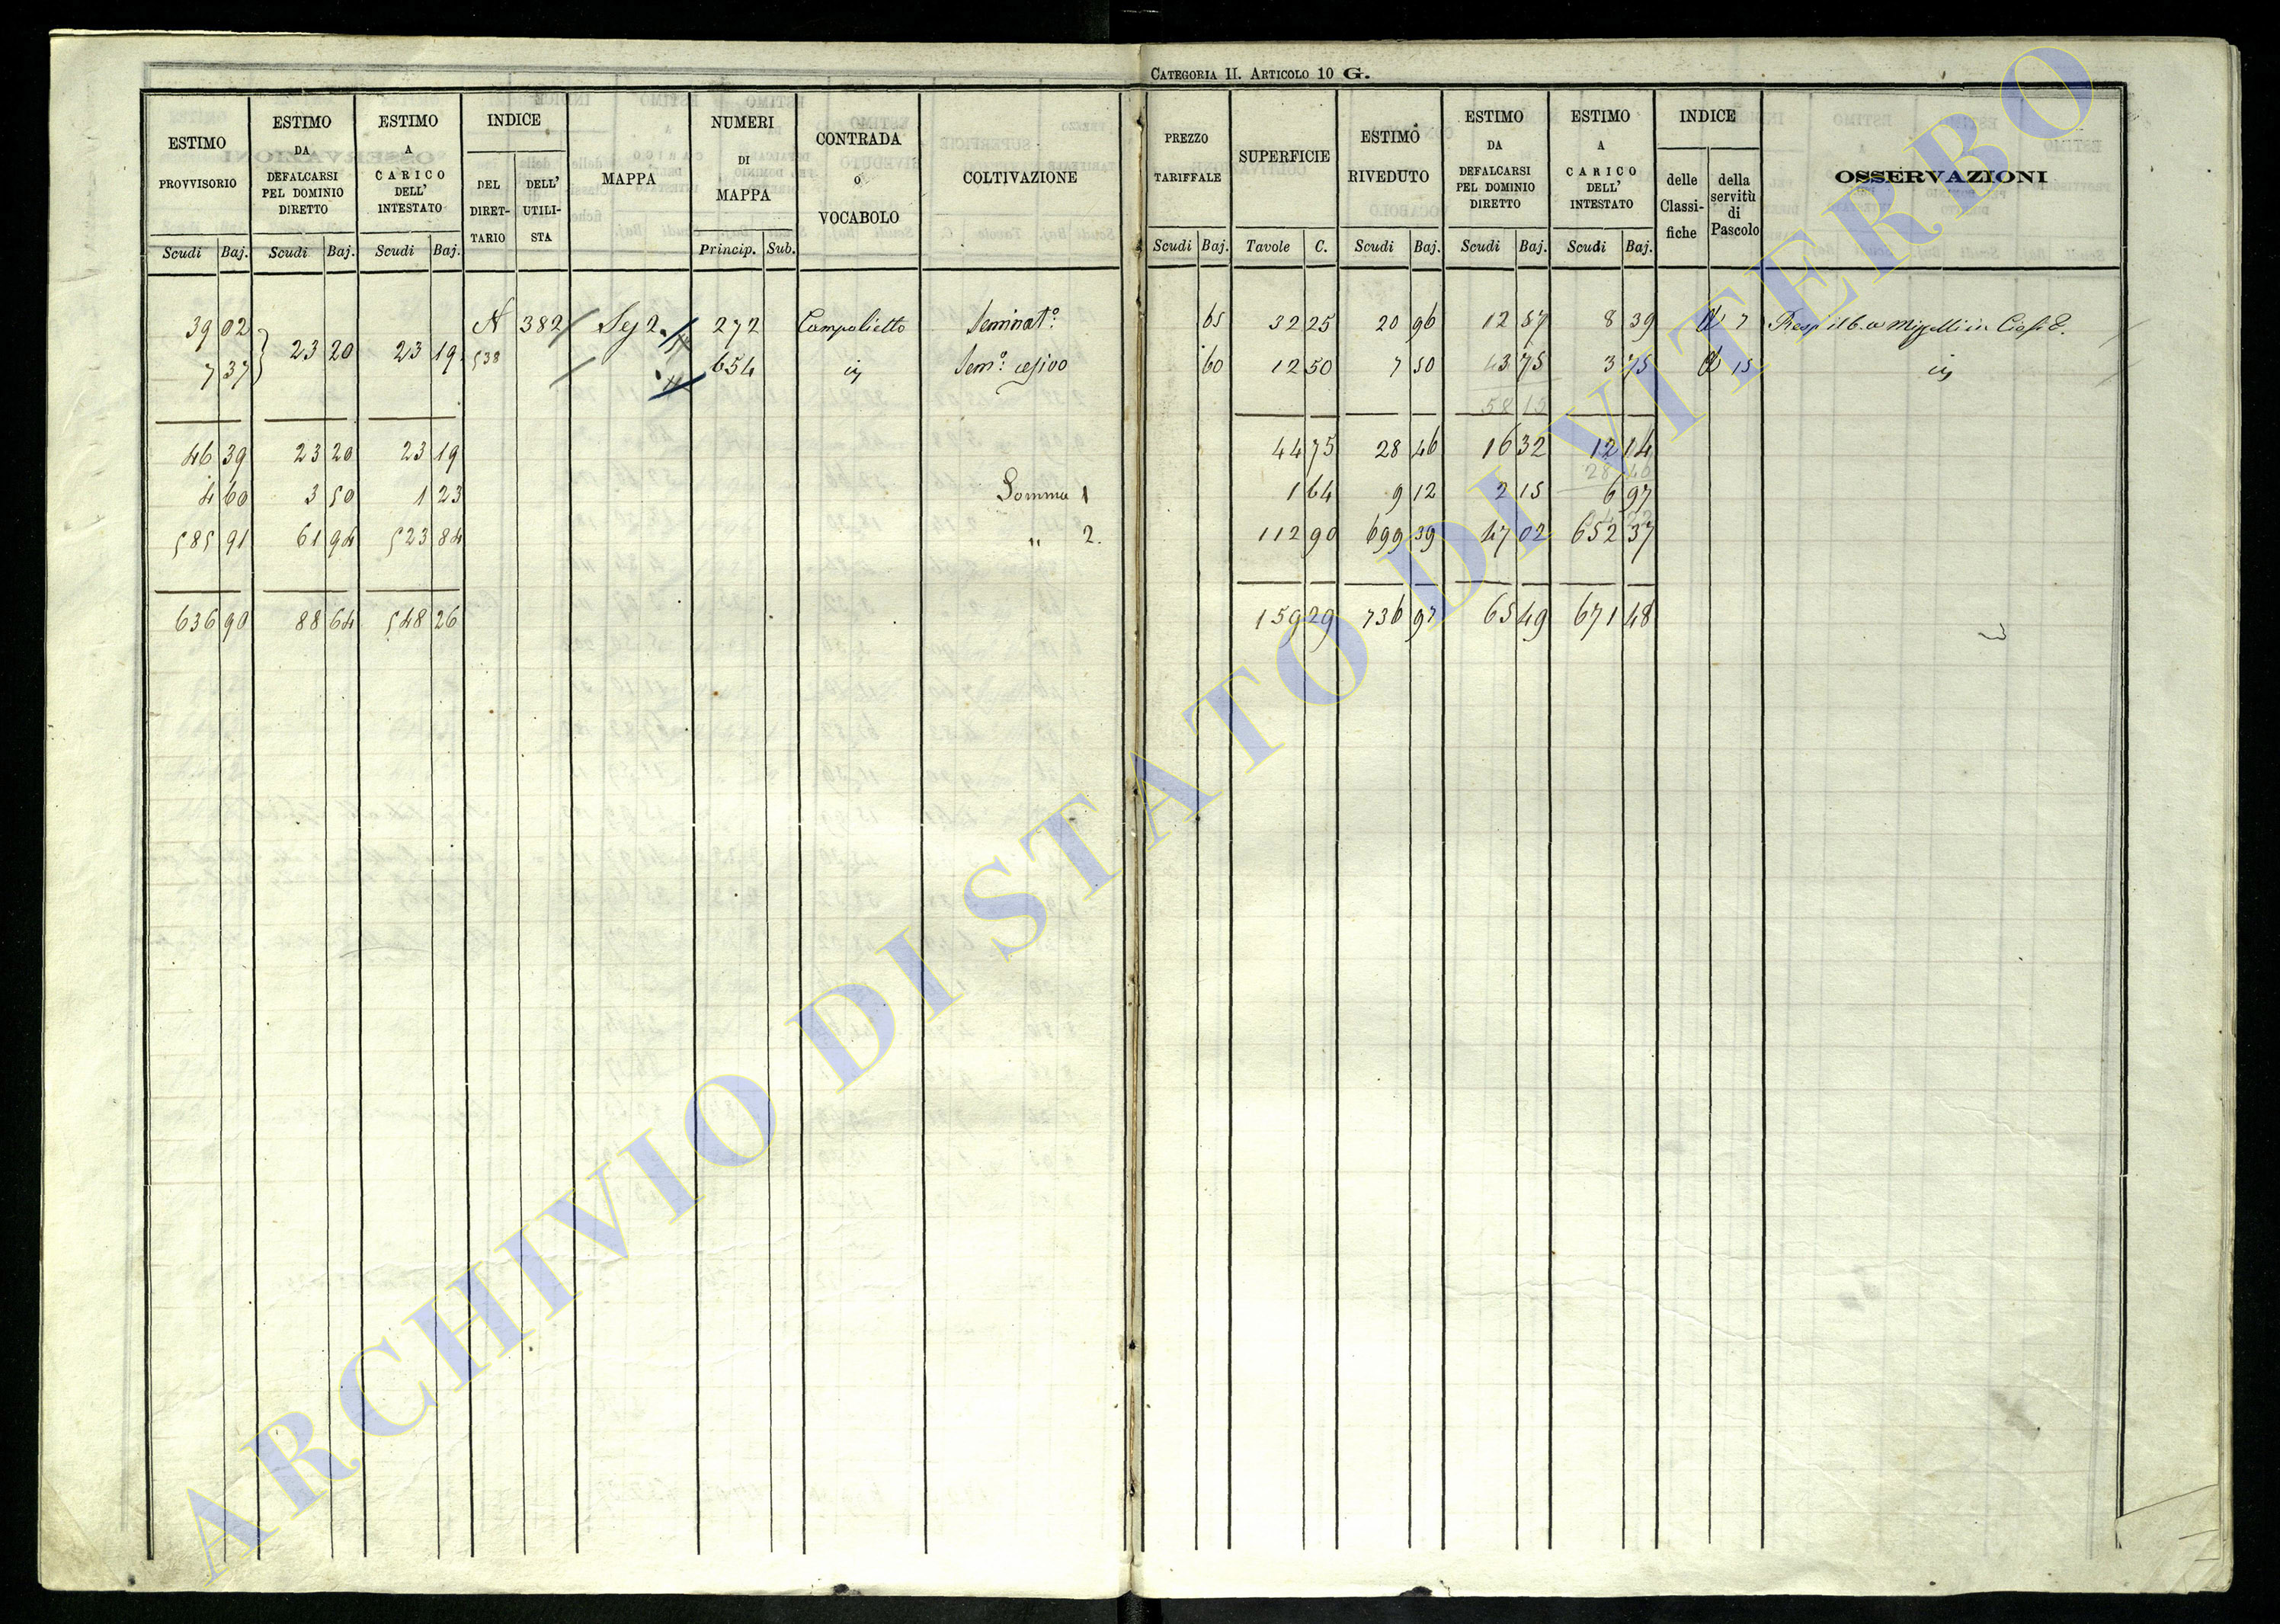 CATEGORIA II. ARTICOLO 10 G.
ESTIMO PROVVISORIO Scudi Baj.
ESTIMO DA DEFALCARSI PEL DOMINIO DIRETTO Scudi Baj.
ESTIMO A CARICO DELL' INTESTATO Scudi Baj.
INDICE DEL DIRET- TARIO DELL' UTILI- STA
MAPPA
NUMERI DI MAPPA Princip. Sub.
CONTRADA o VOCABOLO
COLTIVAZIONE
PREZZO TARIFFALE Scudi Baj.
SUPERFICIE Tavole C.
ESTIMO RIVEDUTO Scudi Baj.
ESTIMO DA DEFALCARSI PEL DOMINIO DIRETTO Scudi Baj.
ESTIMO A CARICO DELL' INTESTATO Scudi Baj.
INDICE delle Classi- fiche della servitù di Pascolo
OSSERVAZIONI
39 02 N 382 Sez 2 272 Campolietto Seminat.º 65 32 25 20 96 12 57 8 39 7
23 20 23 19
7 37 538 654 Sem.º 60 12 50 7 50 3 75 3 75 15
58 15
46 39 23 20 23 19 44 75 28 46 16 32 12 14
28 46
4 60 3 50 1 23 Somma 1 1 64 9 12 2 15 6 97
585 91 61 94 523 84 " 2. 112 90 699 39 47 02 652 37
636 90 88 64 548 26 159 29 736 97 65 49 671 48
ARCHIVIO DI STATO DI VITERBO